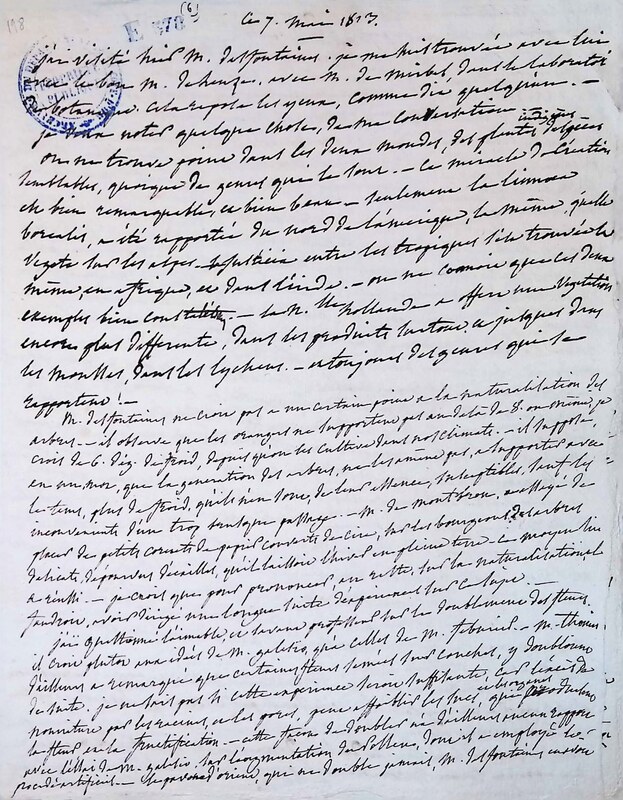 198
E 378 (6)
Ce 7. Mai 1813.
j'ai visité hier M. desfontaines. je me suis trouvée avec lui
avec le bon M. deleuze, avec M. de mirbel, dans le laboratoi
botanique. cela repose les yeux, comme dit quelqu'un. —
je veux noter quelque chose, de ma conversation
on ne trouve point dans les deux mondes, des plantes indigènes d'espèces
semblables, quoique de genres que le sont. — ce miracle de création
est bien remarquable, et bien beau — seulement la linnaea
borealis, a été rapportée du nord de l'amérique, la même qu'elle
végète sur les alpes. entre les tropiques s'est trouvée la
même, en afrique, et dans l'inde. — on ne connoit que ces deux
exemples bien — la N.lle hollande a offert une végétation
encore plus différente, dans les produits surtout, et jusques dans
les mousses, dans les lychens. — et toujours des genres qui se
rapportent! —
M. desfontaines ne croit pas à un certain point à la naturalisation des
arbres. — il observe que les orangers ne supportent pas au delà de 8. ou même, je
crois de 6. dég. de froid, depuis qu'on les cultive dans nos climats. — il suppose,
en un mot, que la génération des arbres, ne les amène pas, à supporter avec
le tems, plus de froid, qu'ils n'en sont, de leur essence, susceptibles, sauf les
inconvéniens d'un trop brusque passage — M. de montbron, a essayé de
placer de petits cornets de papier couverts de cire, sur les bourgeons des arbres
délicats, dépourvus d'écailles, qu'il laissoit l'hiver en pleine terre — ce moyen lui
a réussi. — je crois que pour prononcer, au reste, sur la naturalisation il
faudroit, avoir dirigé une longue suite d'expériences sur ce sujet. —
j'ai questionné l'aimable, et savant professeur sur le doublement des fleurs.
il croit plutôt aux idées de M. galesio, que celles de M. — M. thouin
d'ailleurs a remarqué que certaines fleurs semées sur couches, y doubloient
de suite. je ne sais pas si cette expérience seroit suffisante, car l'excès de
nourriture par les racines, et les pores, peut affoiblir les sucs,
la fleur et la fructification. — cette façon de doubler n'a d'ailleurs aucun rapport
avec l'essai de M. galesio, sur l'augmentation du pollen, dont il a employé le
procédé artificiel. — le pavot d'orient, qui ne double jamais, M. desfontaines